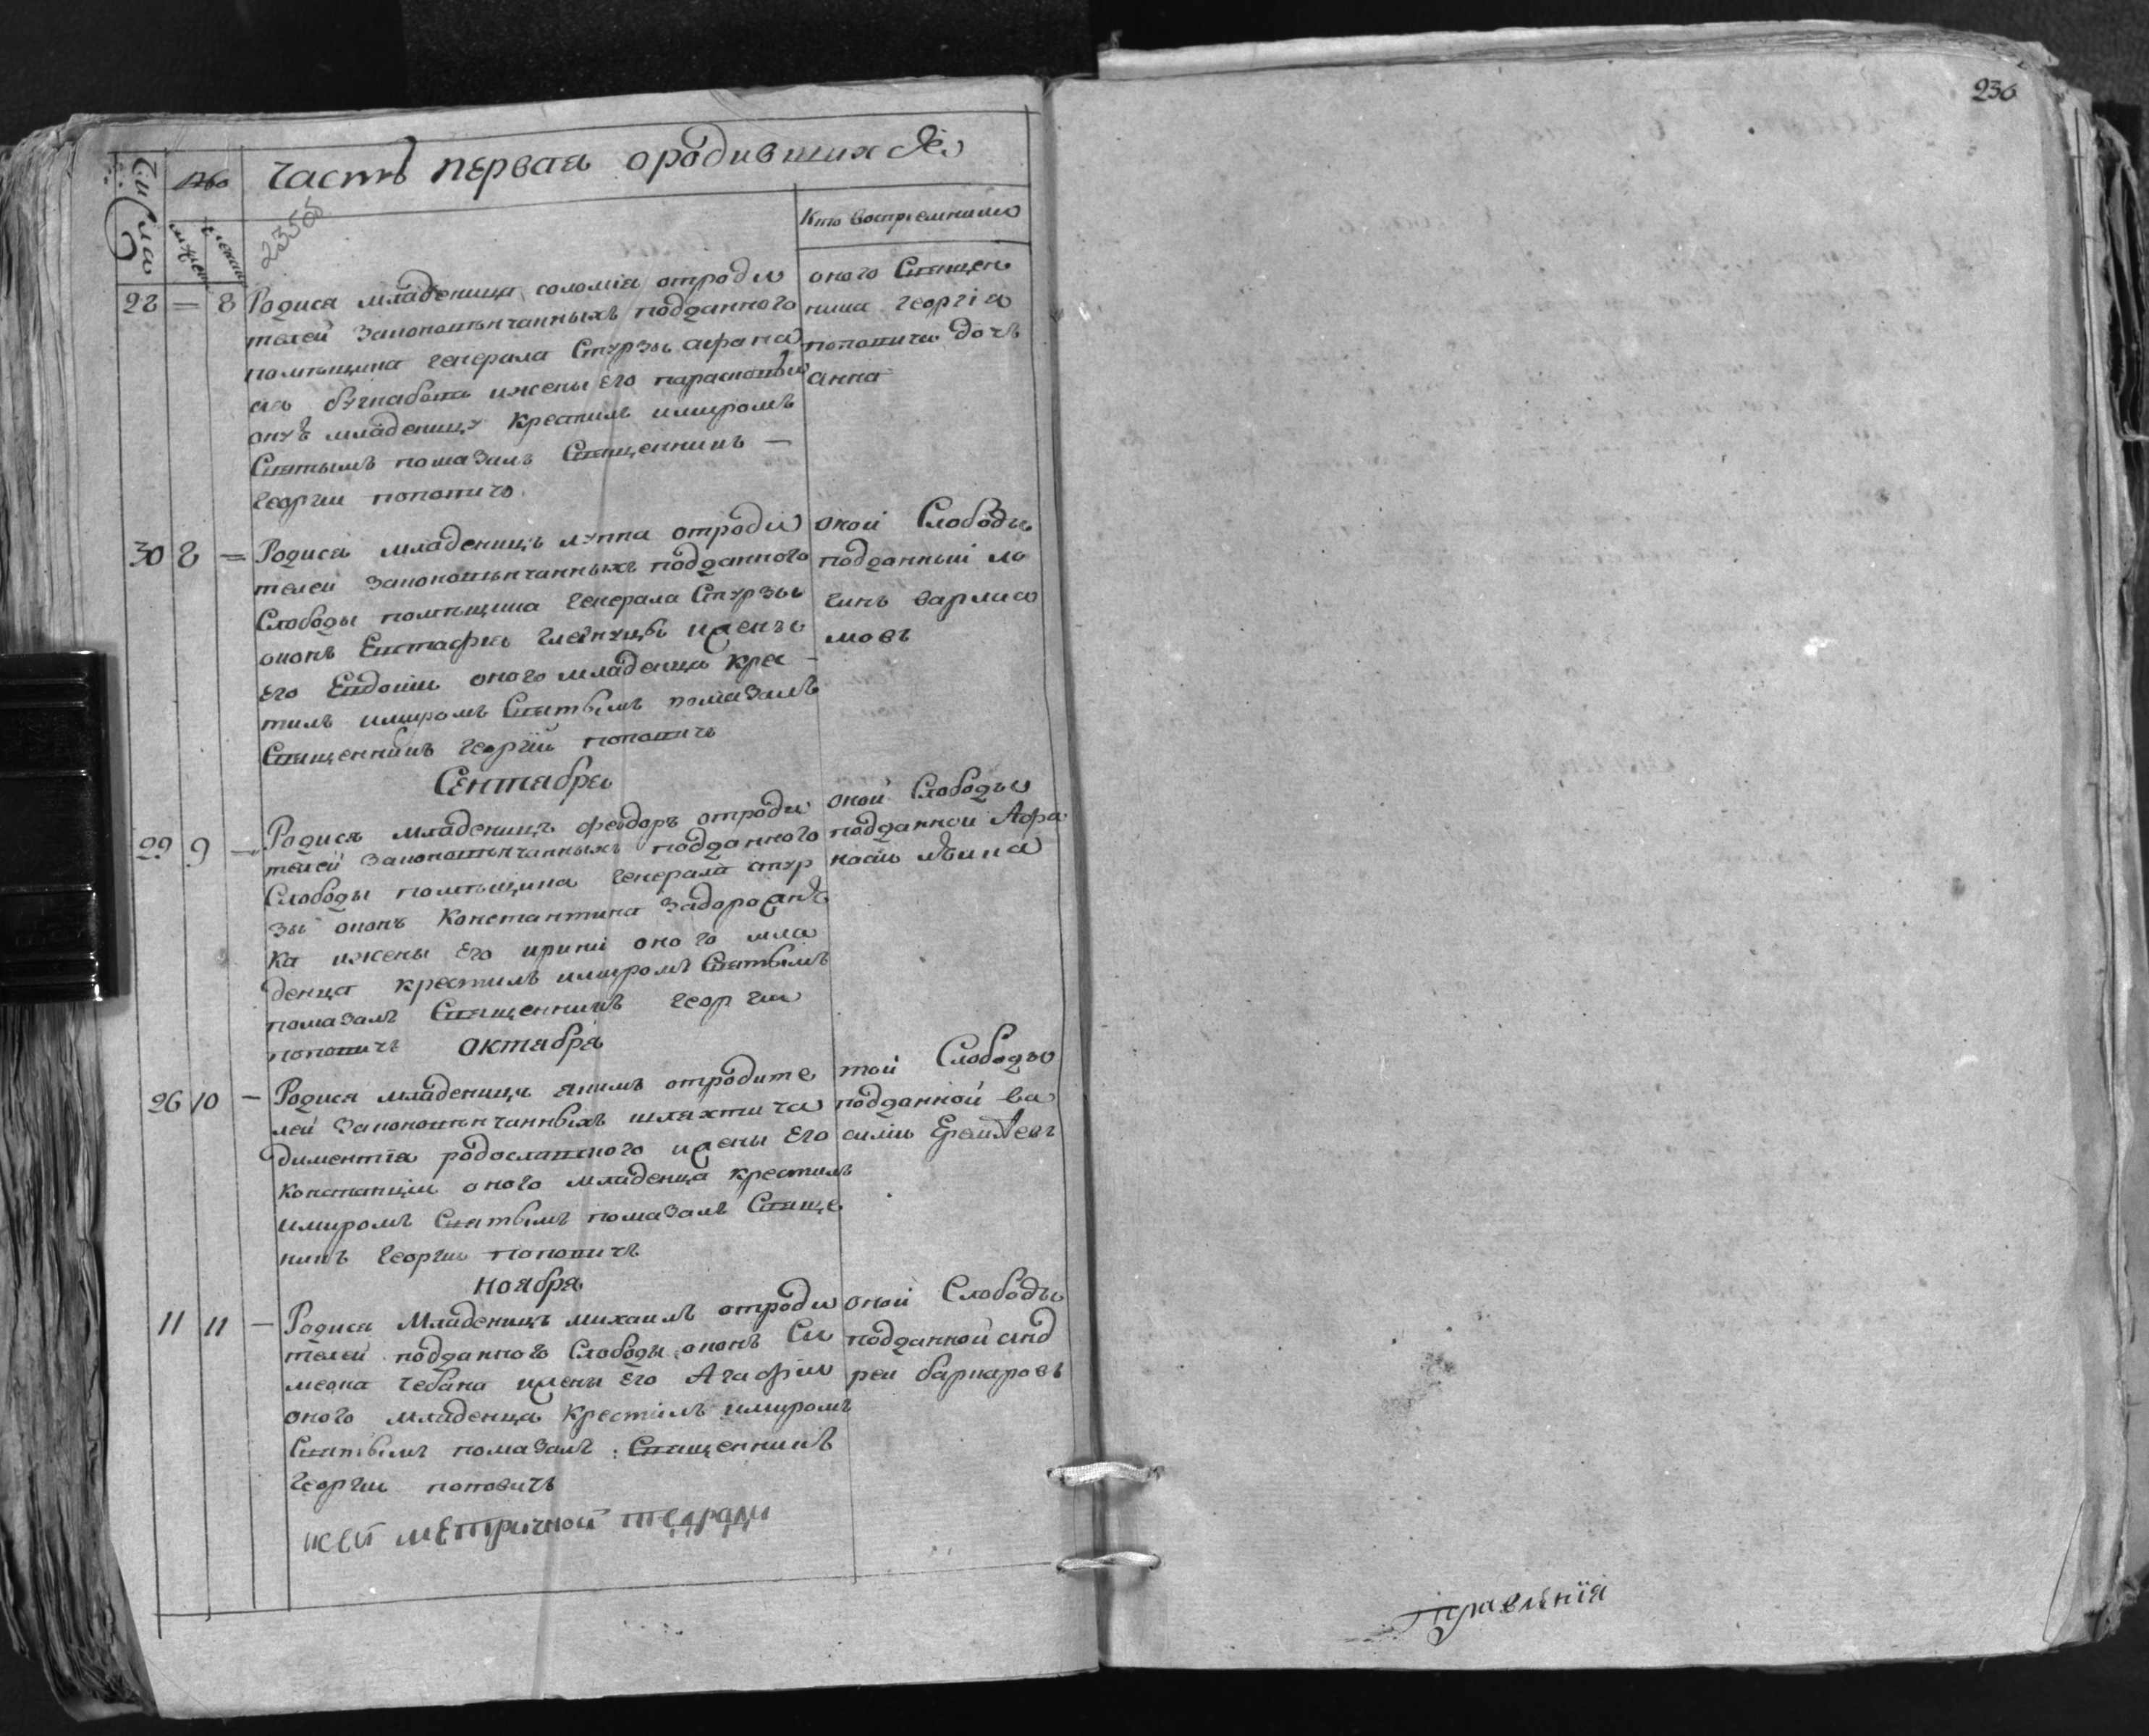 236
часть первая ородившихся
числа
мужеск
женск
Кто восприемники
28 = 8 Родися младеница соломіа отроди
телей законовѣнчанныхъ подданного
помѣщика генерала Стурзы афана
сиа ижены его парасковіи
онуѣ младеницу крестилъ имиромъ
Святымъ помазалъ Священникъ —
Георгии поповичъ
оного Священ
ника георгіа
поповича дочъ
анна
30 8 = Родися младеницъ луппа отроди
телеи законовѣнчанныхъ подданного
Слободы помѣщика генерала Стурзы
онокъ Евстафиа ижены
его Евдокіи оного младенца кре —
тилъ имиромъ Святымъ помазалъ
Священникъ Георгіи поповичъ
оной Слободы
подданныи ло
гинъ варлаа
мовъ
Сентабра
29 9 — Родися младеницъ феодоръ отроди
телей законовѣнчанныхъ подданного
Слободы помѣщика генерала стур
зы онокъ Константина Задорожнѣ
ка ижены его ирині оного мла
денца крестилъ имиромъ Святымъ
помазалъ Священникъ георгіи
поповичъ
оной Слободы
подданной Афа
насіи
октабра
26 10 — Родися младеницъ якимъ отродите
лей законовѣнчанныхъ шляхтича
диментіа родославского ижены его
констанціи оного младенца крестилъ
имиромъ Святымъ помазалъ Свяще
никъ Георгіи поповичъ
той Слободы
подданной ва
силіи
ноябра
11 11 — Родися Младеницъ михаилъ отроди
телей подданного Слободы онокъ Си
меона чебана ижены его Агафіи
оного младенца крестилъ имиромъ
Святымъ помазалъ Священникъ
Георгіи поповичъ
оной Слободы
подданной анд
реи
ксей метричной тедради
Правлѣнія